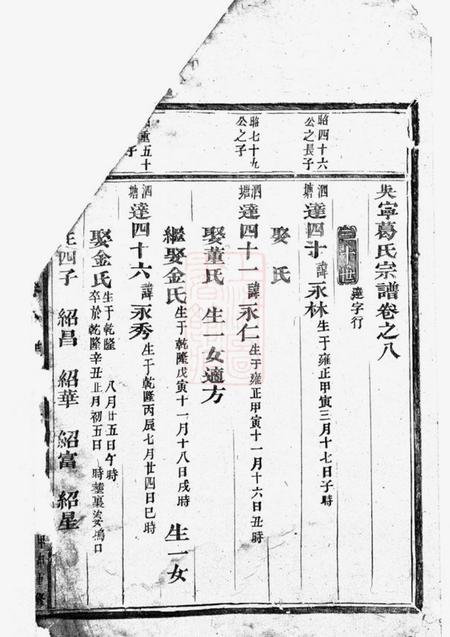 吳寧葛氏宗譜卷之八
達字行
昭四十六公之長子
泗塘達四十諱永林生于雍正甲寅三月十七日子時
娶 氏
昭七十九公之子
泗塘達四十一諱永仁生于雍正甲寅十一月十六日丑時
娶董氏 生一女適方
繼娶金氏生于乾隆戊寅十一月十八日戌時 生一女
五十
子
泗塘達四十六諱永秀生于乾隆丙辰七月廿四日巳時
娶金氏生于乾隆 八月廿五日午時
卒於乾隆辛丑正月初五日 時
四子 紹昌 紹華 紹富 紹星